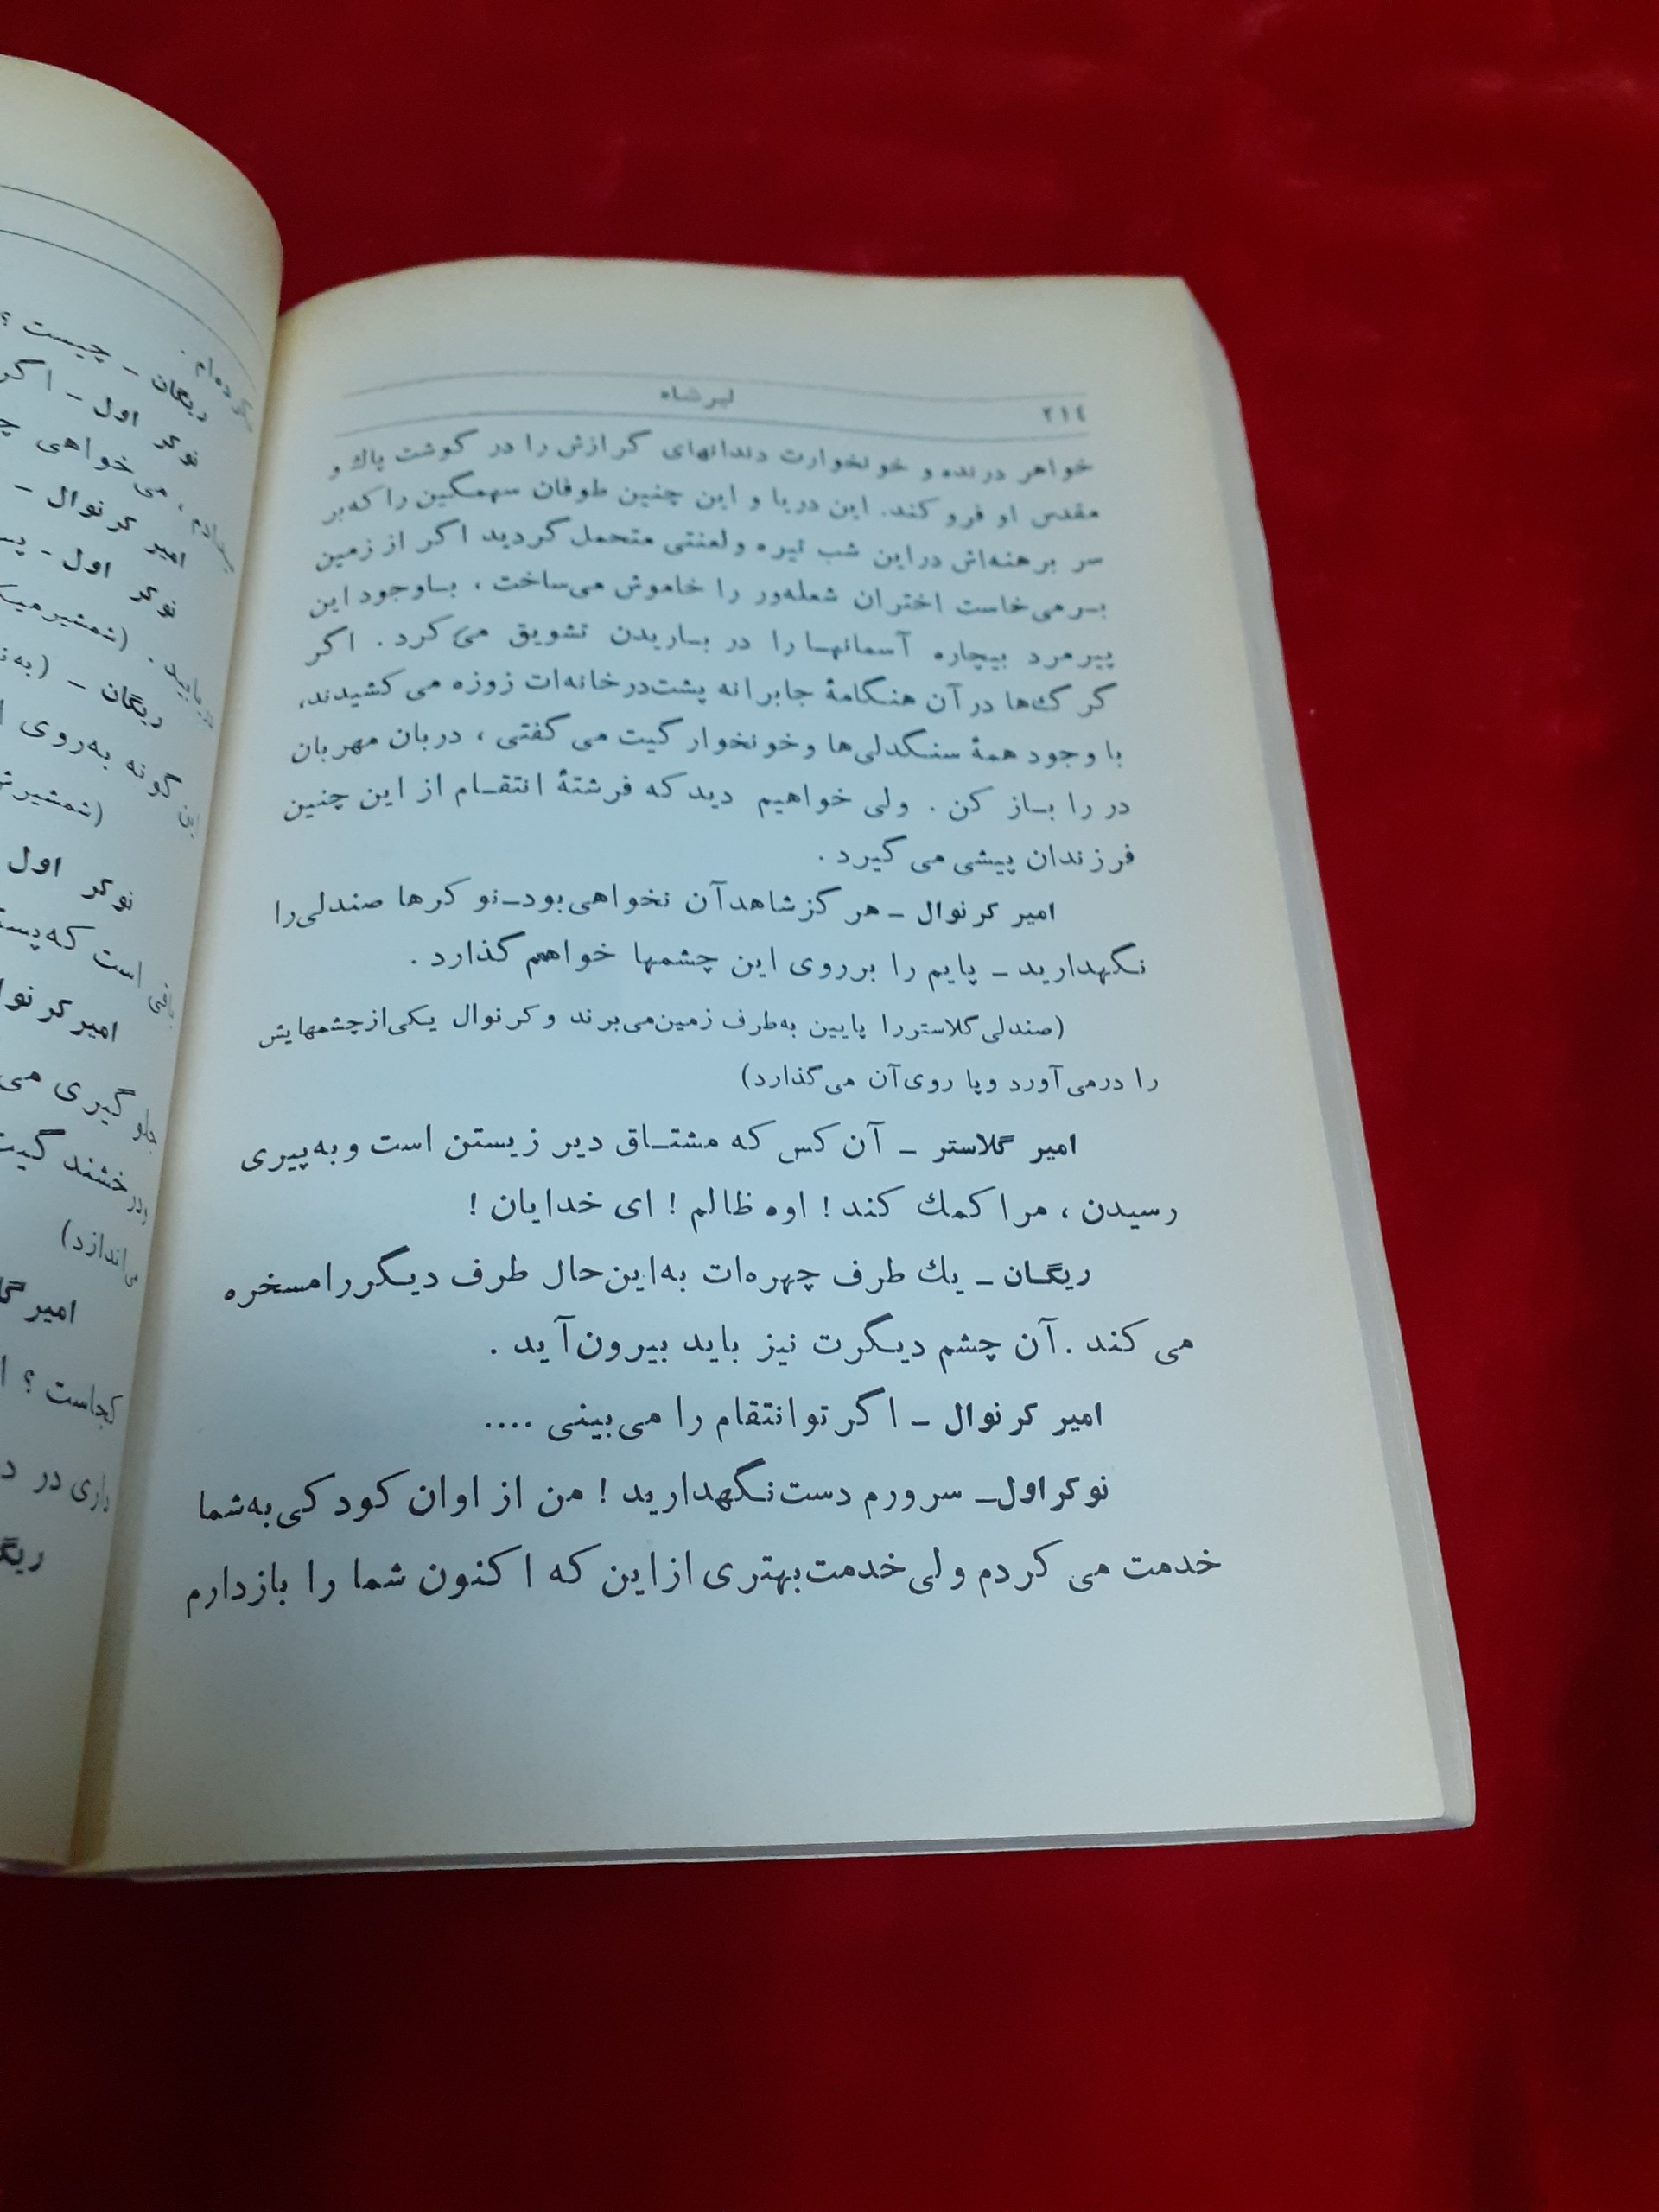 ۲۱٤
لیرشاه
خواهر درنده و خونخوارت دندانهای گرازش را در گوشت پاك و
مقدس او فرو کند. این دریا و این چنین طوفان سهمگین را که بر
سر برهنه‌اش در این شب تیره و لعنتی متحمل گردید اگر از زمین
بـرمی‌خاست اختران شعله‌ور را خاموش می‌ساخت ، بـاوجود این
پیرمرد بیچاره آسمانهـا را در بـاریدن تشویق می‌کرد . اگر
گرگ‌ها در آن هنگامهٔ جابرانه پشت در خانه‌ات زوزه می‌کشیدند،
با وجود همهٔ سنگدلی‌ها و خونخوارگیت می‌گفتی ، دربان مهربان
در را بـاز کن . ولی خواهیم دید که فرشتهٔ انتقـام از این چنین
فرزندان پیشی می‌گیرد .
امیر کرنوال ـ هرگز شاهد آن نخواهی بود ـ نوکرها صندلی را
نگهدارید ـ پایم را بر روی این چشمها خواهم گذارد .
(صندلی گلاستر را پایین به‌طرف زمین می‌برند و کرنوال یکی از چشمهایش
را درمی‌آورد و پا روی آن می‌گذارد)
امیر گلاستر ـ آن کس که مشتـاق دیر زیستن است و به‌پیری
رسیدن ، مرا کمك کند ! اوه ظالم ! ای خدایان !
ریگـان ـ یك طرف چهره‌ات به‌این‌حال طرف دیگر را مسخره
می‌کند . آن چشم دیگرت نیز باید بیرون آید .
امیر کرنوال ـ اگر تو انتقام را می‌بینی ....
نوکر اول ـ سرورم دست نگهدارید ! من از اوان کودکی به‌شما
خدمت می‌کردم ولی خدمت بهتری از این که اکنون شما را بازدارم
ریگان ـ چیست ؟
نوکر اول ـ اگر
می‌خواهی
امیر کرنوال ـ
نوکر اول ـ
ریگان ـ
گونه به‌روی
نوکر اول
است که
امیر کرنوال
جلوگیری می
می‌اندازد)
امیر
کجاست ؟
داری در